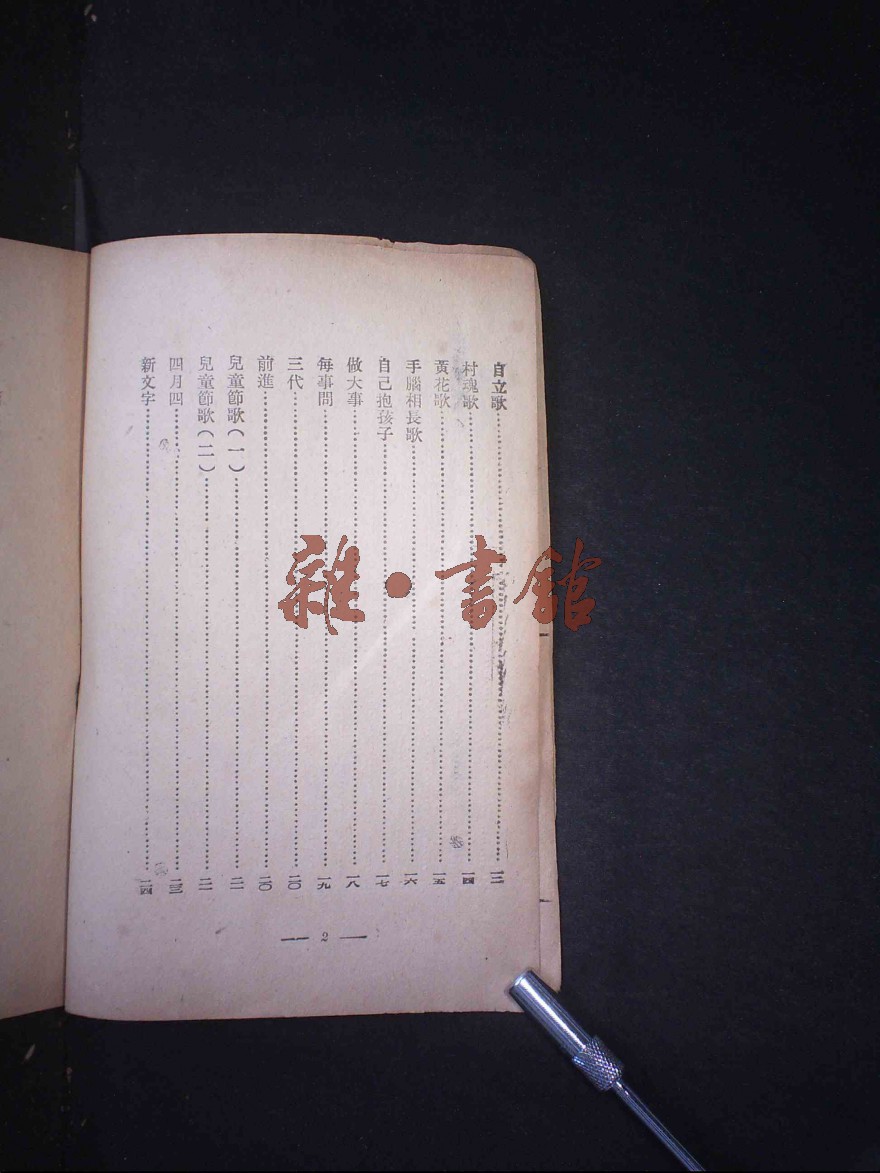 自立歌……一三
村魂歌……一四
黃花歌……一五
手腦相長歌……一六
自己抱孩子……一七
做大事……一八
每事問……一九
三代……二〇
前進……二〇
兒童節歌(一)……二一
兒童節歌(二)……二二
四月四……二三
新文字……二四
— 2 —
雜·書館